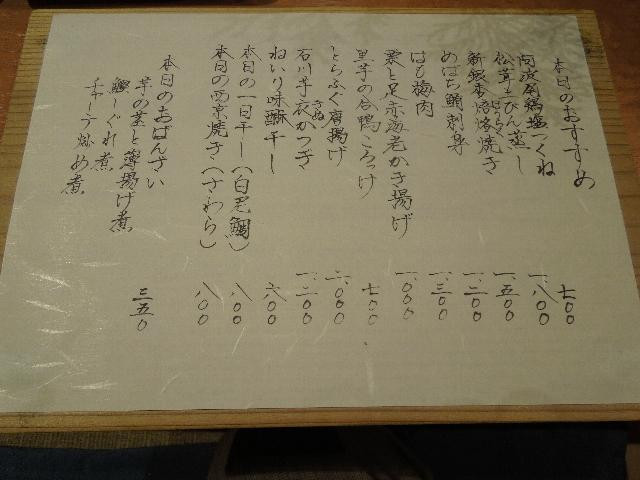 本日のおすすめ
阿波尾鶏塩つくね 七〇〇
松茸土びん蒸し 一、八〇〇
新銀杏焙烙焼き 一、五〇〇
ほうろく
めばち鮪刺身 一、二〇〇
はも梅肉 一、三〇〇
栗と足赤海老かき揚げ 一、〇〇〇
里芋の合鴨ころっけ 七〇〇
とらふぐ唐揚げ 二、〇〇〇
石川芋衣かつぎ 一、二〇〇
きぬ
ねいり味醂干し 六〇〇
本日の一日干し(白尾鯛) 八〇〇
本日の西京焼き(さわら) 八〇〇
本日のおばんざい 三五〇
芋の茎と薄揚げ煮
鰹しぐれ煮
チャーテ炒め煮